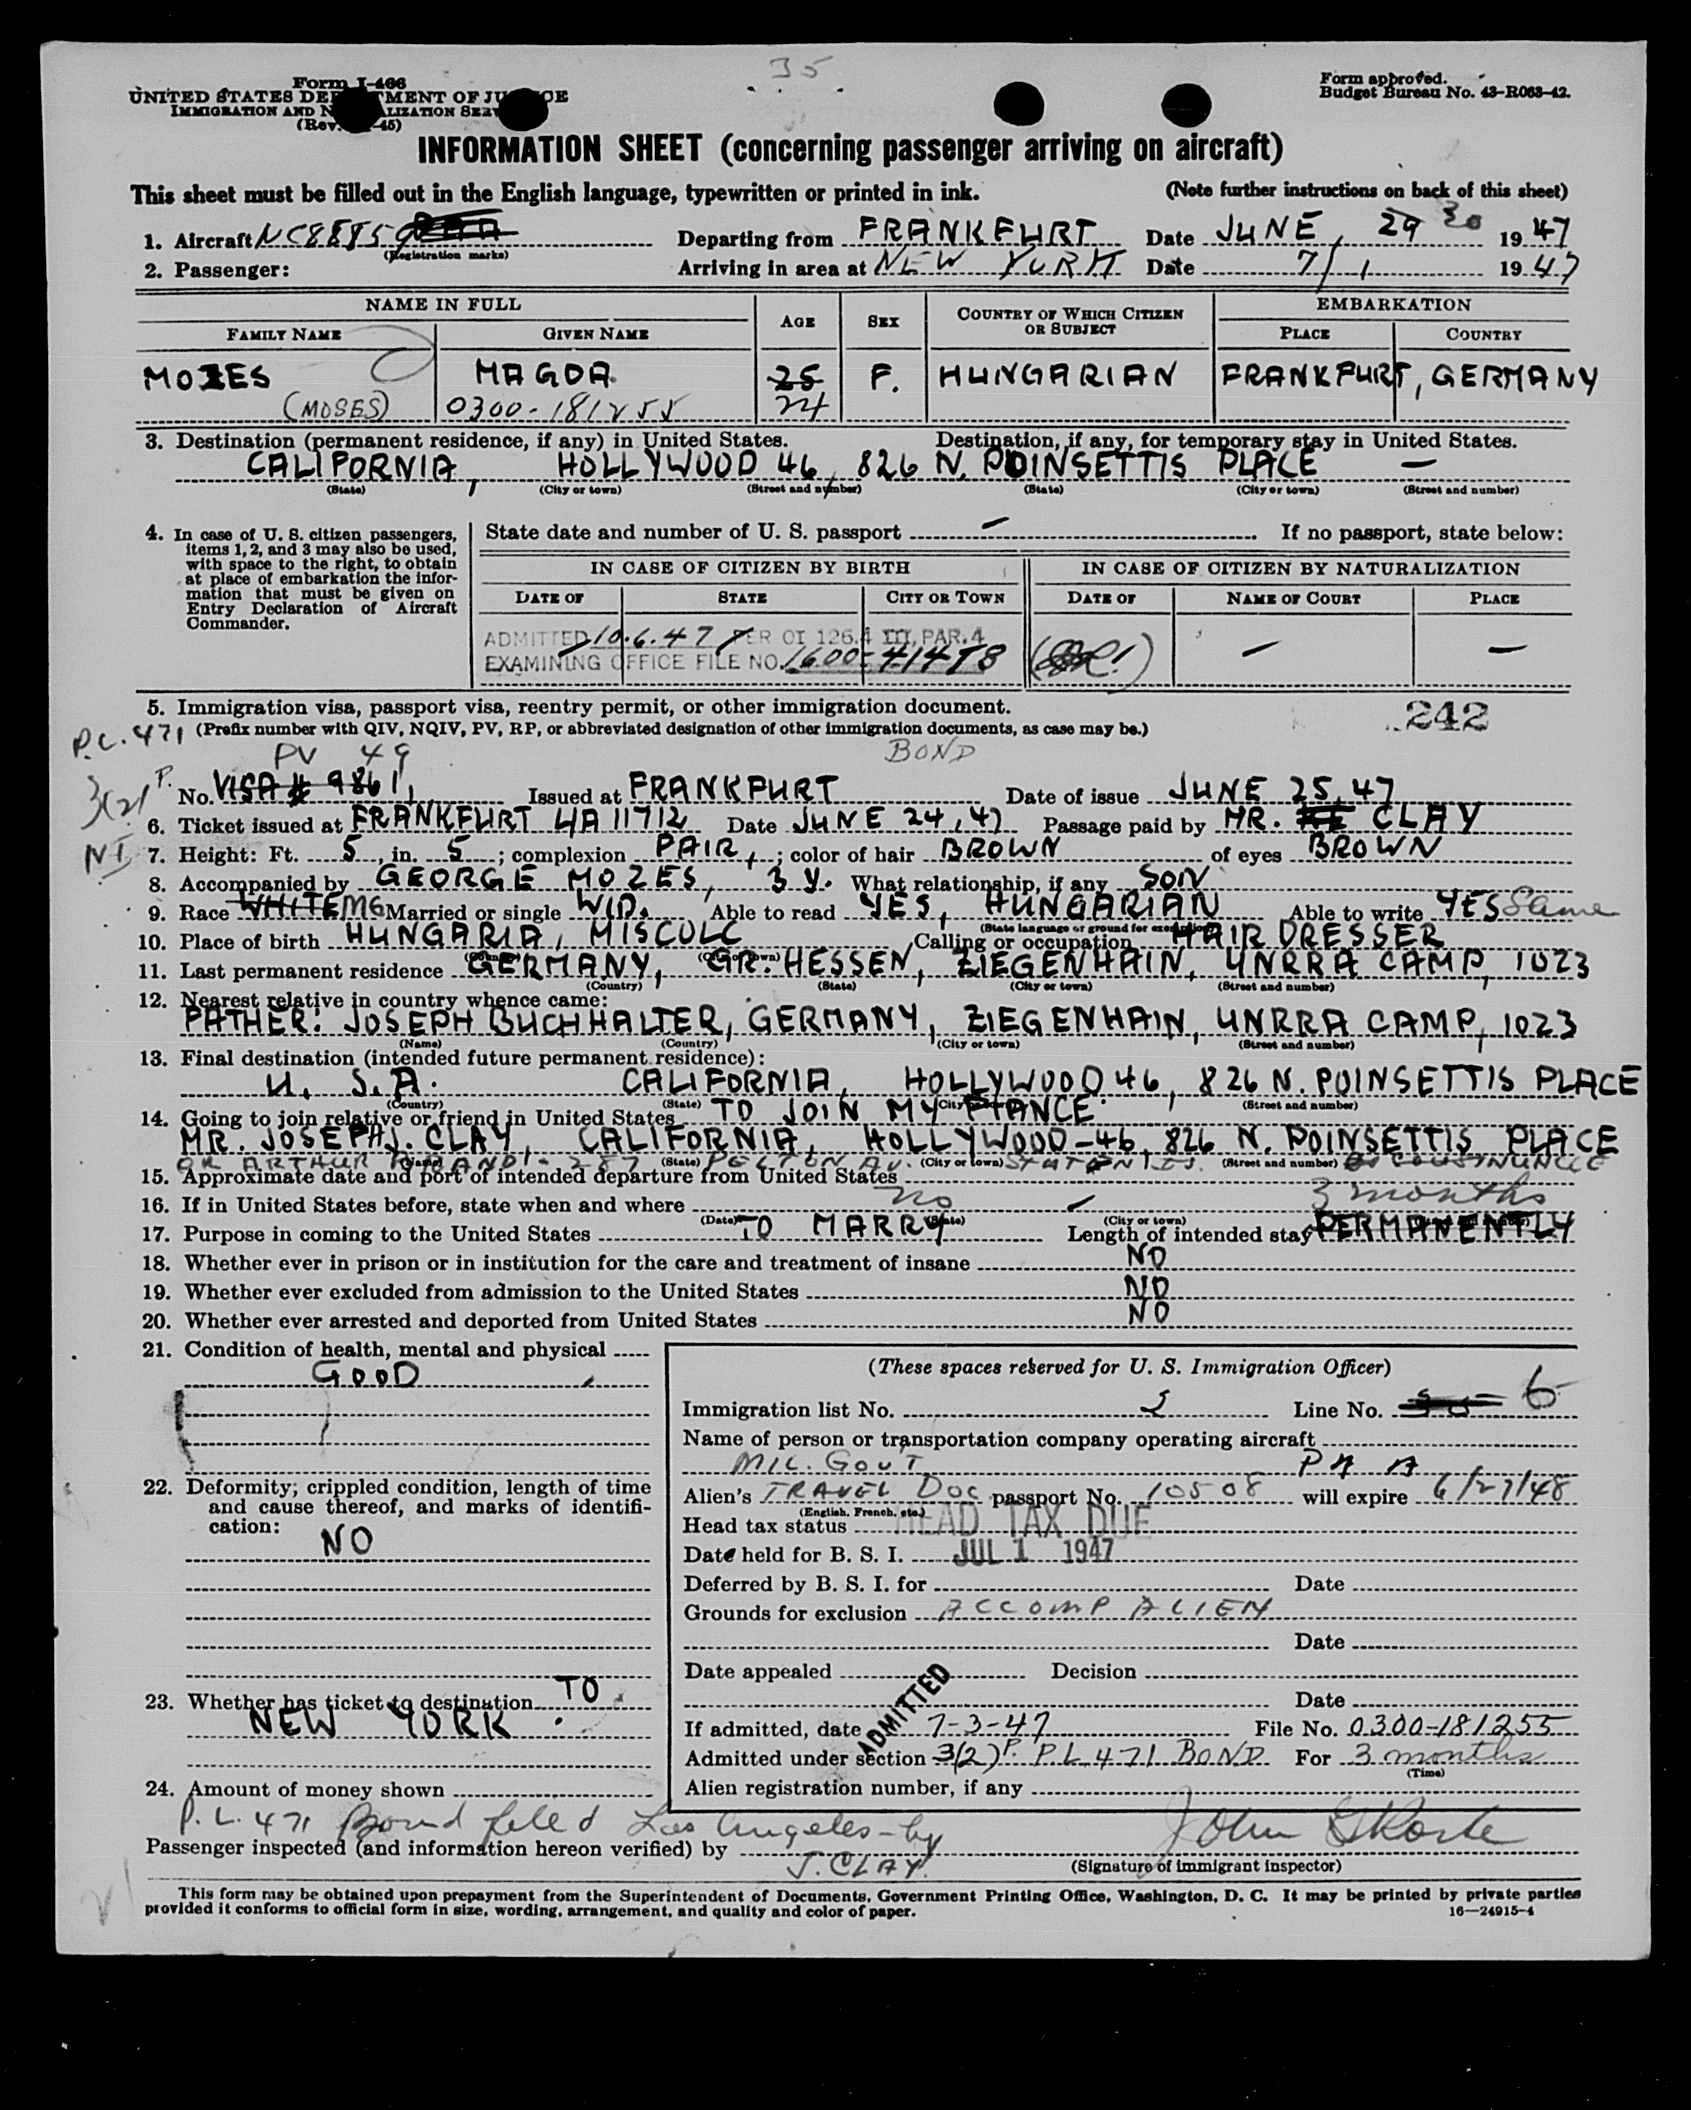 35
Form I-466
UNITED STATES DEPARTMENT OF JUSTICE
IMMIGRATION AND NATURALIZATION SERVICE
(Rev. -45)
Form approved.
Budget Bureau No. 43-R063-42.
INFORMATION SHEET (concerning passenger arriving on aircraft)
This sheet must be filled out in the English language, typewritten or printed in ink. (Note further instructions on back of this sheet)
1. Aircraft NC88859 Departing from FRANKFURT Date JUNE, 29 30 1947
(Registration marks)
2. Passenger: Arriving in area at NEW YORK Date 7/1 1947
NAME IN FULL AGE SEX COUNTRY OF WHICH CITIZEN OR SUBJECT EMBARKATION
FAMILY NAME GIVEN NAME PLACE COUNTRY
MOZES MAGDA 25 F. HUNGARIAN FRANKFURT, GERMANY
(MOSES) 0300-181255 24
3. Destination (permanent residence, if any) in United States. Destination, if any, for temporary stay in United States.
CALIFORNIA, HOLLYWOOD 46, 826 N. POINSETTIS PLACE —
(State) (City or town) (Street and number) (State) (City or town) (Street and number)
4. In case of U. S. citizen passengers, items 1, 2, and 3 may also be used, with space to the right, to obtain at place of embarkation the information that must be given on Entry Declaration of Aircraft Commander.
State date and number of U. S. passport — If no passport, state below:
IN CASE OF CITIZEN BY BIRTH IN CASE OF CITIZEN BY NATURALIZATION
DATE OF STATE CITY OR TOWN DATE OF NAME OF COURT PLACE
ADMITTED 10.6.47 PER OI 126.4 III, PAR. 4 — —
EXAMINING OFFICE FILE NO. 1600-41478
5. Immigration visa, passport visa, reentry permit, or other immigration document. 242
P.L. 471 (Prefix number with QIV, NQIV, PV, RP, or abbreviated designation of other immigration documents, as case may be.)
PV 49 BOND
3(2) P. No. VISA # 9861, Issued at FRANKFURT Date of issue JUNE 25, 47
6. Ticket issued at FRANKFURT UA 11712 Date JUNE 24, 47 Passage paid by MR. CLAY
NI 7. Height: Ft. 5, in. 5; complexion FAIR,; color of hair BROWN of eyes BROWN
8. Accompanied by GEORGE MOZES, 3 Y. What relationship, if any SON
9. Race WHITE MG Married or single WID. Able to read YES, HUNGARIAN Able to write YES Same
(State language or ground for exemption)
10. Place of birth HUNGARIA, MISCOLC Calling or occupation HAIR DRESSER
(Country) (City or town)
11. Last permanent residence GERMANY, GR. HESSEN, ZIEGENHAIN, UNRRA CAMP, 1023
(Country) (State) (City or town) (Street and number)
12. Nearest relative in country whence came:
FATHER: JOSEPH BUCHHALTER, GERMANY, ZIEGENHAIN, UNRRA CAMP, 1023
(Name) (Country) (City or town) (Street and number)
13. Final destination (intended future permanent residence):
U. S. A. CALIFORNIA, HOLLYWOOD 46, 826 N. POINSETTIS PLACE
(Country) (State) (City or town) (Street and number)
14. Going to join relative or friend in United States TO JOIN MY FIANCE
MR. JOSEPH J. CLAY, CALIFORNIA, HOLLYWOOD-46, 826 N. POINSETTIS PLACE
(Name) (State) (City or town) (Street and number)
OR ARTHUR 287 PELTON AV. STATEN IS.
15. Approximate date and port of intended departure from United States
16. If in United States before, state when and where no — 3 months
(Date) (State) (City or town)
17. Purpose in coming to the United States TO MARRY Length of intended stay PERMANENTLY
18. Whether ever in prison or in institution for the care and treatment of insane NO
19. Whether ever excluded from admission to the United States NO
20. Whether ever arrested and deported from United States NO
21. Condition of health, mental and physical
GOOD
22. Deformity; crippled condition, length of time and cause thereof, and marks of identification:
NO
23. Whether has ticket to destination TO
NEW YORK.
24. Amount of money shown
(These spaces reserved for U. S. Immigration Officer)
Immigration list No. 2 Line No. 6
Name of person or transportation company operating aircraft
MIL. GOV'T P A A
Alien's TRAVEL DOC passport No. 10508 will expire 6/27/48
(English, French, etc.)
Head tax status HEAD TAX DUE
Date held for B. S. I. JUL 1 1947
Deferred by B. S. I. for Date
Grounds for exclusion ACCOMP ALIEN
Date
Date appealed Decision
Date
ADMITTED
If admitted, date 7-3-47 File No. 0300-181255
Admitted under section 3(2) P. PL 471 BOND For 3 months
(Time)
Alien registration number, if any
P.L. 471 Bond filed Los Angeles - by
J. CLAY.
Passenger inspected (and information hereon verified) by
(Signature of immigrant inspector)
This form may be obtained upon prepayment from the Superintendent of Documents, Government Printing Office, Washington, D. C. It may be printed by private parties
provided it conforms to official form in size, wording, arrangement, and quality and color of paper. 16—24915-4